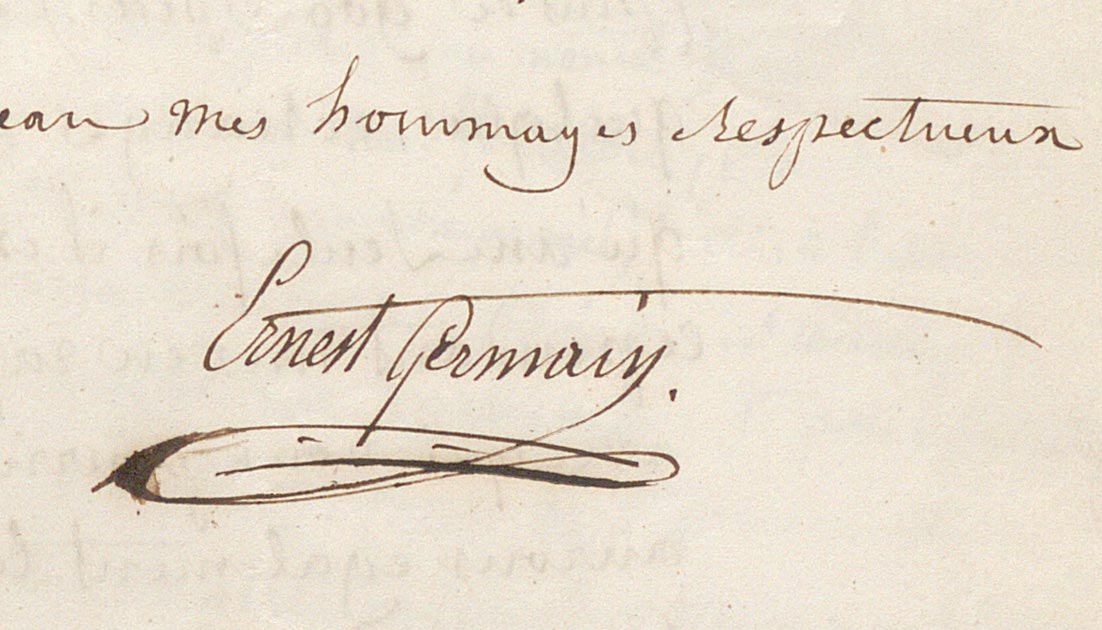 ean mes hommages respectueux
Ernest Germain.